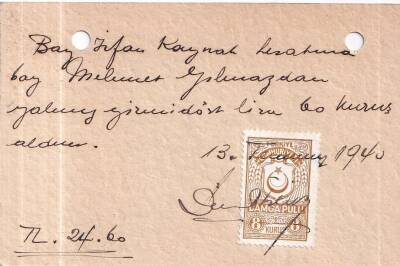 Bay İrfan Kaynak hesabına
bay Mehmet Yılmazdan
yalnız yirmidört lira 60 kuruş
aldım.
13. 1940
DAMGA PULU
8 8
KURUŞ
TL. 24.60